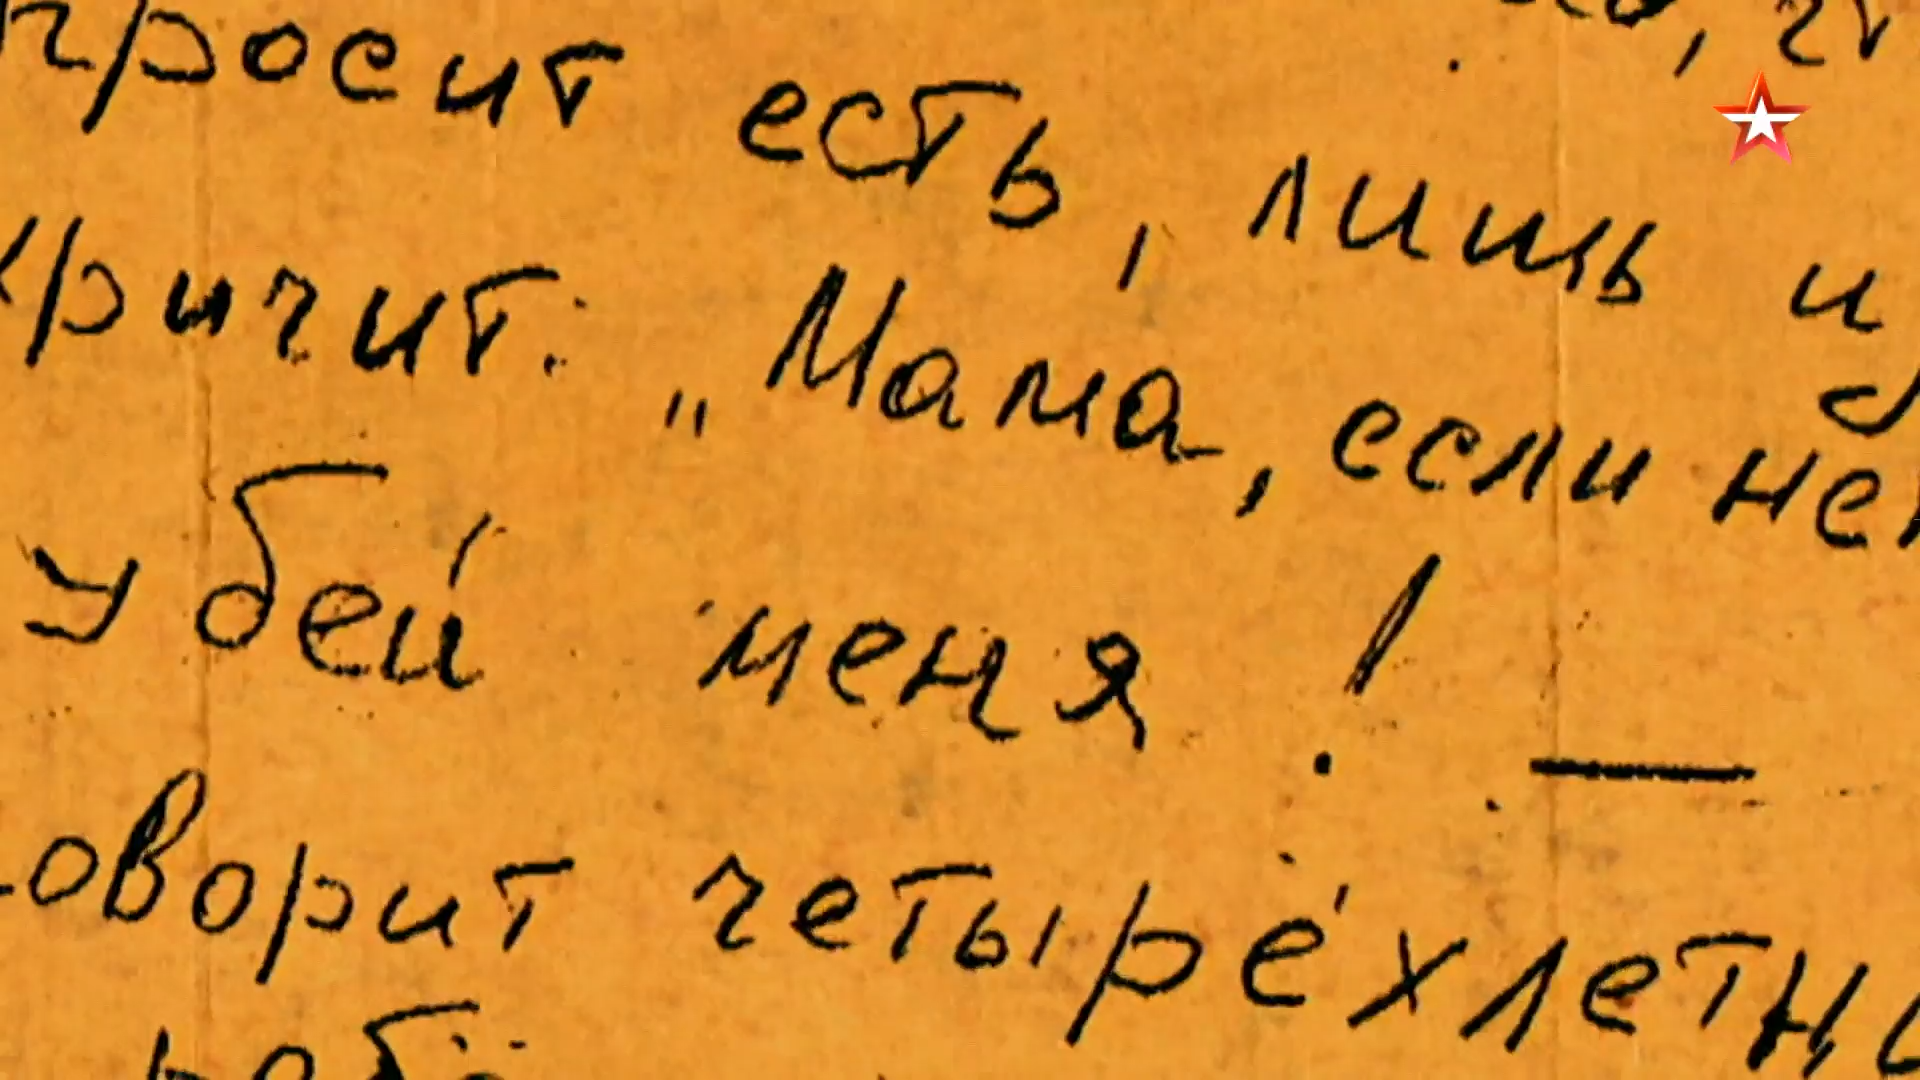 просит есть, лишь
кричит: „Мама, если
убей меня! —
оворит четырёхлетн